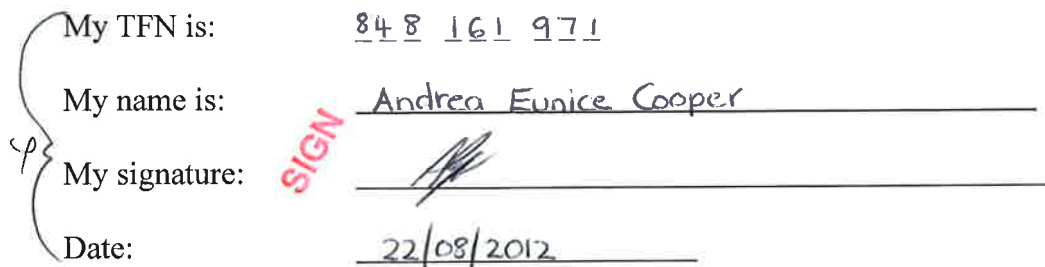 My TFN is: 848 161 971
My name is: Andrea Eunice Cooper
SIGN
My signature:
Date: 22/08/2012